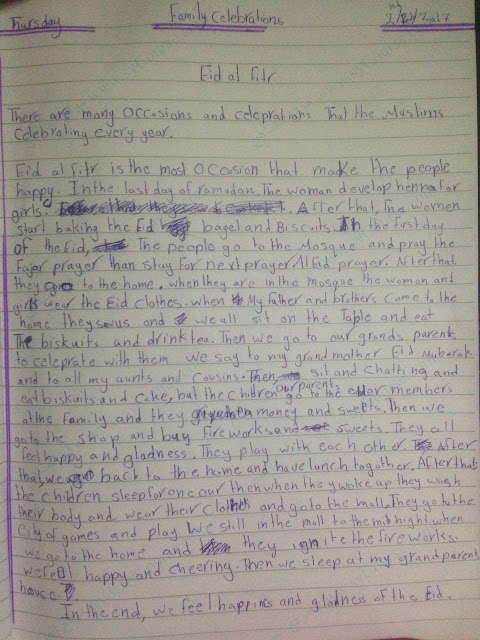 Thursday Family Celebrations 2/3/2017
Eid al fitr
There are many Occasions and celeprations That the Muslims
Celebrating every year.
Eid al fitr is the most Occasion that make the people
happy. In the last day of ramadan. The woman develop henna for
girls. After that, The women
start baking the Eid bagel and Biscuits. In the first day
of the Eid, The people go to the Mosque and pray the
Fajer prayer than stay for next prayer Al Eid prayer. After that
they go to the home. when they are in the mosque the women and
girls wear the Eid clothes. when My father and brothers come to the
home they sevus and we all sit on the Table and eat
The biskuits and drink tea. Then we go to our grands parents
to celeprate with them we say to my grand mother Eid Mubarak
and to all my aunts and Cousins. Then, sit and Chatting and
eat biskuits and Cake, but the children go to the our parent elder members
at the Family and they give them money and sweets. Then we
go to the shop and buy fireworks and sweets. They all
feel happy and gladness. They play with each other. After
that we go back to the home and have lunch togather. After that
the children sleep for one our then when they wake up they wash
their body and wear their clothes and go to the mall. They go to the
City of games and play. We still in the mall to the mibnight when
we go to the home and they ignite the fireworks.
we feel happy and cheering. Then we sleep at my grand parent
house.
In the end, we feel happines and gladness of the Eid.